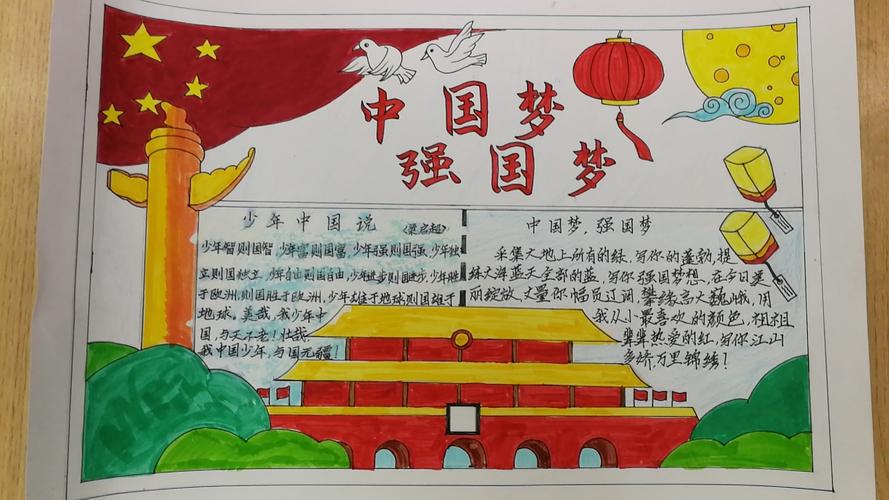 中国梦
强国梦
少年中国说
《梁启超》
少年智则国智,少年富则国富,少年强则国强,少年独
立则国独立,少年自由则国自由,少年进步则国进步,少年胜
于欧洲,则国胜于欧洲,少年雄于地球则国雄于
地球。美哉,我少年中
国,与天不老!壮哉,
我中国少年,与国无疆!
中国梦,强国梦
采集大地上所有的绿,写你的蓬勃,提
炼大海蓝天全部的蓝,写你强国梦想,在今日美
丽绽放,丈量你幅员辽阔,攀缘高大巍峨,用
我从小最喜欢的颜色,祖祖
辈辈热爱的红,写你江山
多娇,万里锦绣!